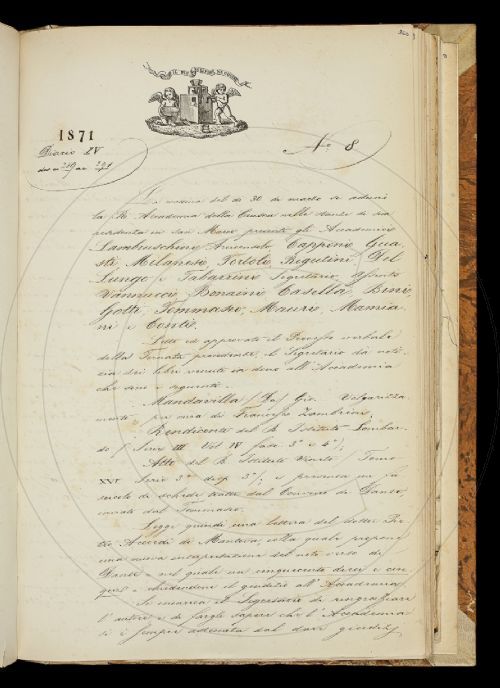 200
IL PIÙ BEL FIOR NE COGLIE
1871
Diario XV
N.º 8
La mattina del dì 30 de marzo si adunò
la R. Accademia della Crusca nelle stanze di sua
residenza in San Marco presenti gli Accademici
Lambruschini Arciconsolo, Capponi, Gua-
sti, Milanesi, Tortoli, Rigutini, Del
Lungo e Tabarrini Segretario, assenti
Vannucci, Bonaini, Casella, Bini,
Gotti, Tommaseo, Mauri, Mamia-
ni e Conti.
Letto ed approvato il Processo verbale
della Tornata precedente, il Segretario dà noti-
zia dei libri venuti in dono all'Accademia
che sono i seguenti.
Mandavilla (Da) Gio. Volgarizza-
mento per cura di Francesco Zambrini;
Rendiconti del R. Istituto Lombar-
do (Serie III Vol IV fasc. 3º e 4º);
Atti del R. Istituto Veneto (Tomo
XVI Serie 3ª disp. 3ª); e presenta un fa-
scicolo di schede tratte dal Convivio di Dante,
inviate dal Tommaseo.
Legge quindi una lettera del dottor
Accordi di Mantova, colla quale propone
una nuova interpretazione del noto verso di
Dante - nel quale un cinquecento dieci e cin-
que - chiedendone il giudizio all'Accademia.
Si incarica il Segretario di ringraziare
l'autore e di fargli sapere che l'Accademia
si è sempre astenuta dal dare giudizj